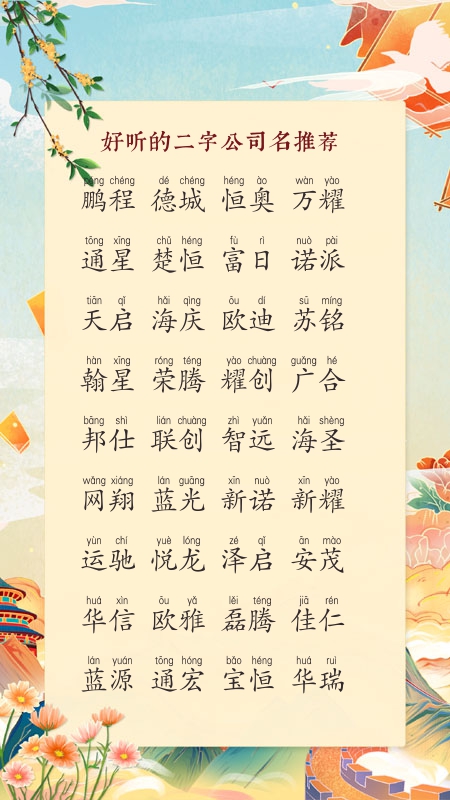 好听的二字公司名推荐
péng chéng dé chéng héng ào wàn yào
鹏程 德城 恒奥 万耀
tōng xīng chǔ héng fù rì nuò pài
通星 楚恒 富日 诺派
tiān qǐ hǎi qìng ōu dí sū míng
天启 海庆 欧迪 苏铭
hàn xīng róng téng yào chuàng guǎng hé
翰星 荣腾 耀创 广合
bāng shì lián chuàng zhì yuǎn hǎi shèng
邦仕 联创 智远 海圣
wǎng xiáng lán guāng xīn nuò xīn yào
网翔 蓝光 新诺 新耀
yùn chí yuè lóng zé qǐ ān mào
运驰 悦龙 泽启 安茂
huá xìn ōu yǎ lěi téng jiā rén
华信 欧雅 磊腾 佳仁
lán yuán tōng hóng bǎo héng huá ruì
蓝源 通宏 宝恒 华瑞